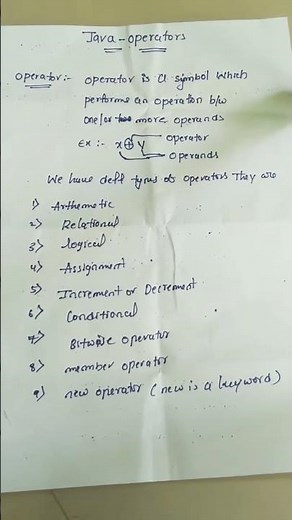 Java-operators
operator:- operator is a symbol which
performs an operation b/w
one/or more operands
Ex:- x+y operator
operands
We have deff types of operators They are
1) Arthemetic
2) Relational
3) logical
4) Assignment
5) Increment or Decrement
6) Conditional
7) Bitwise operator
8) member operator
9) new operator (new is a keyword)